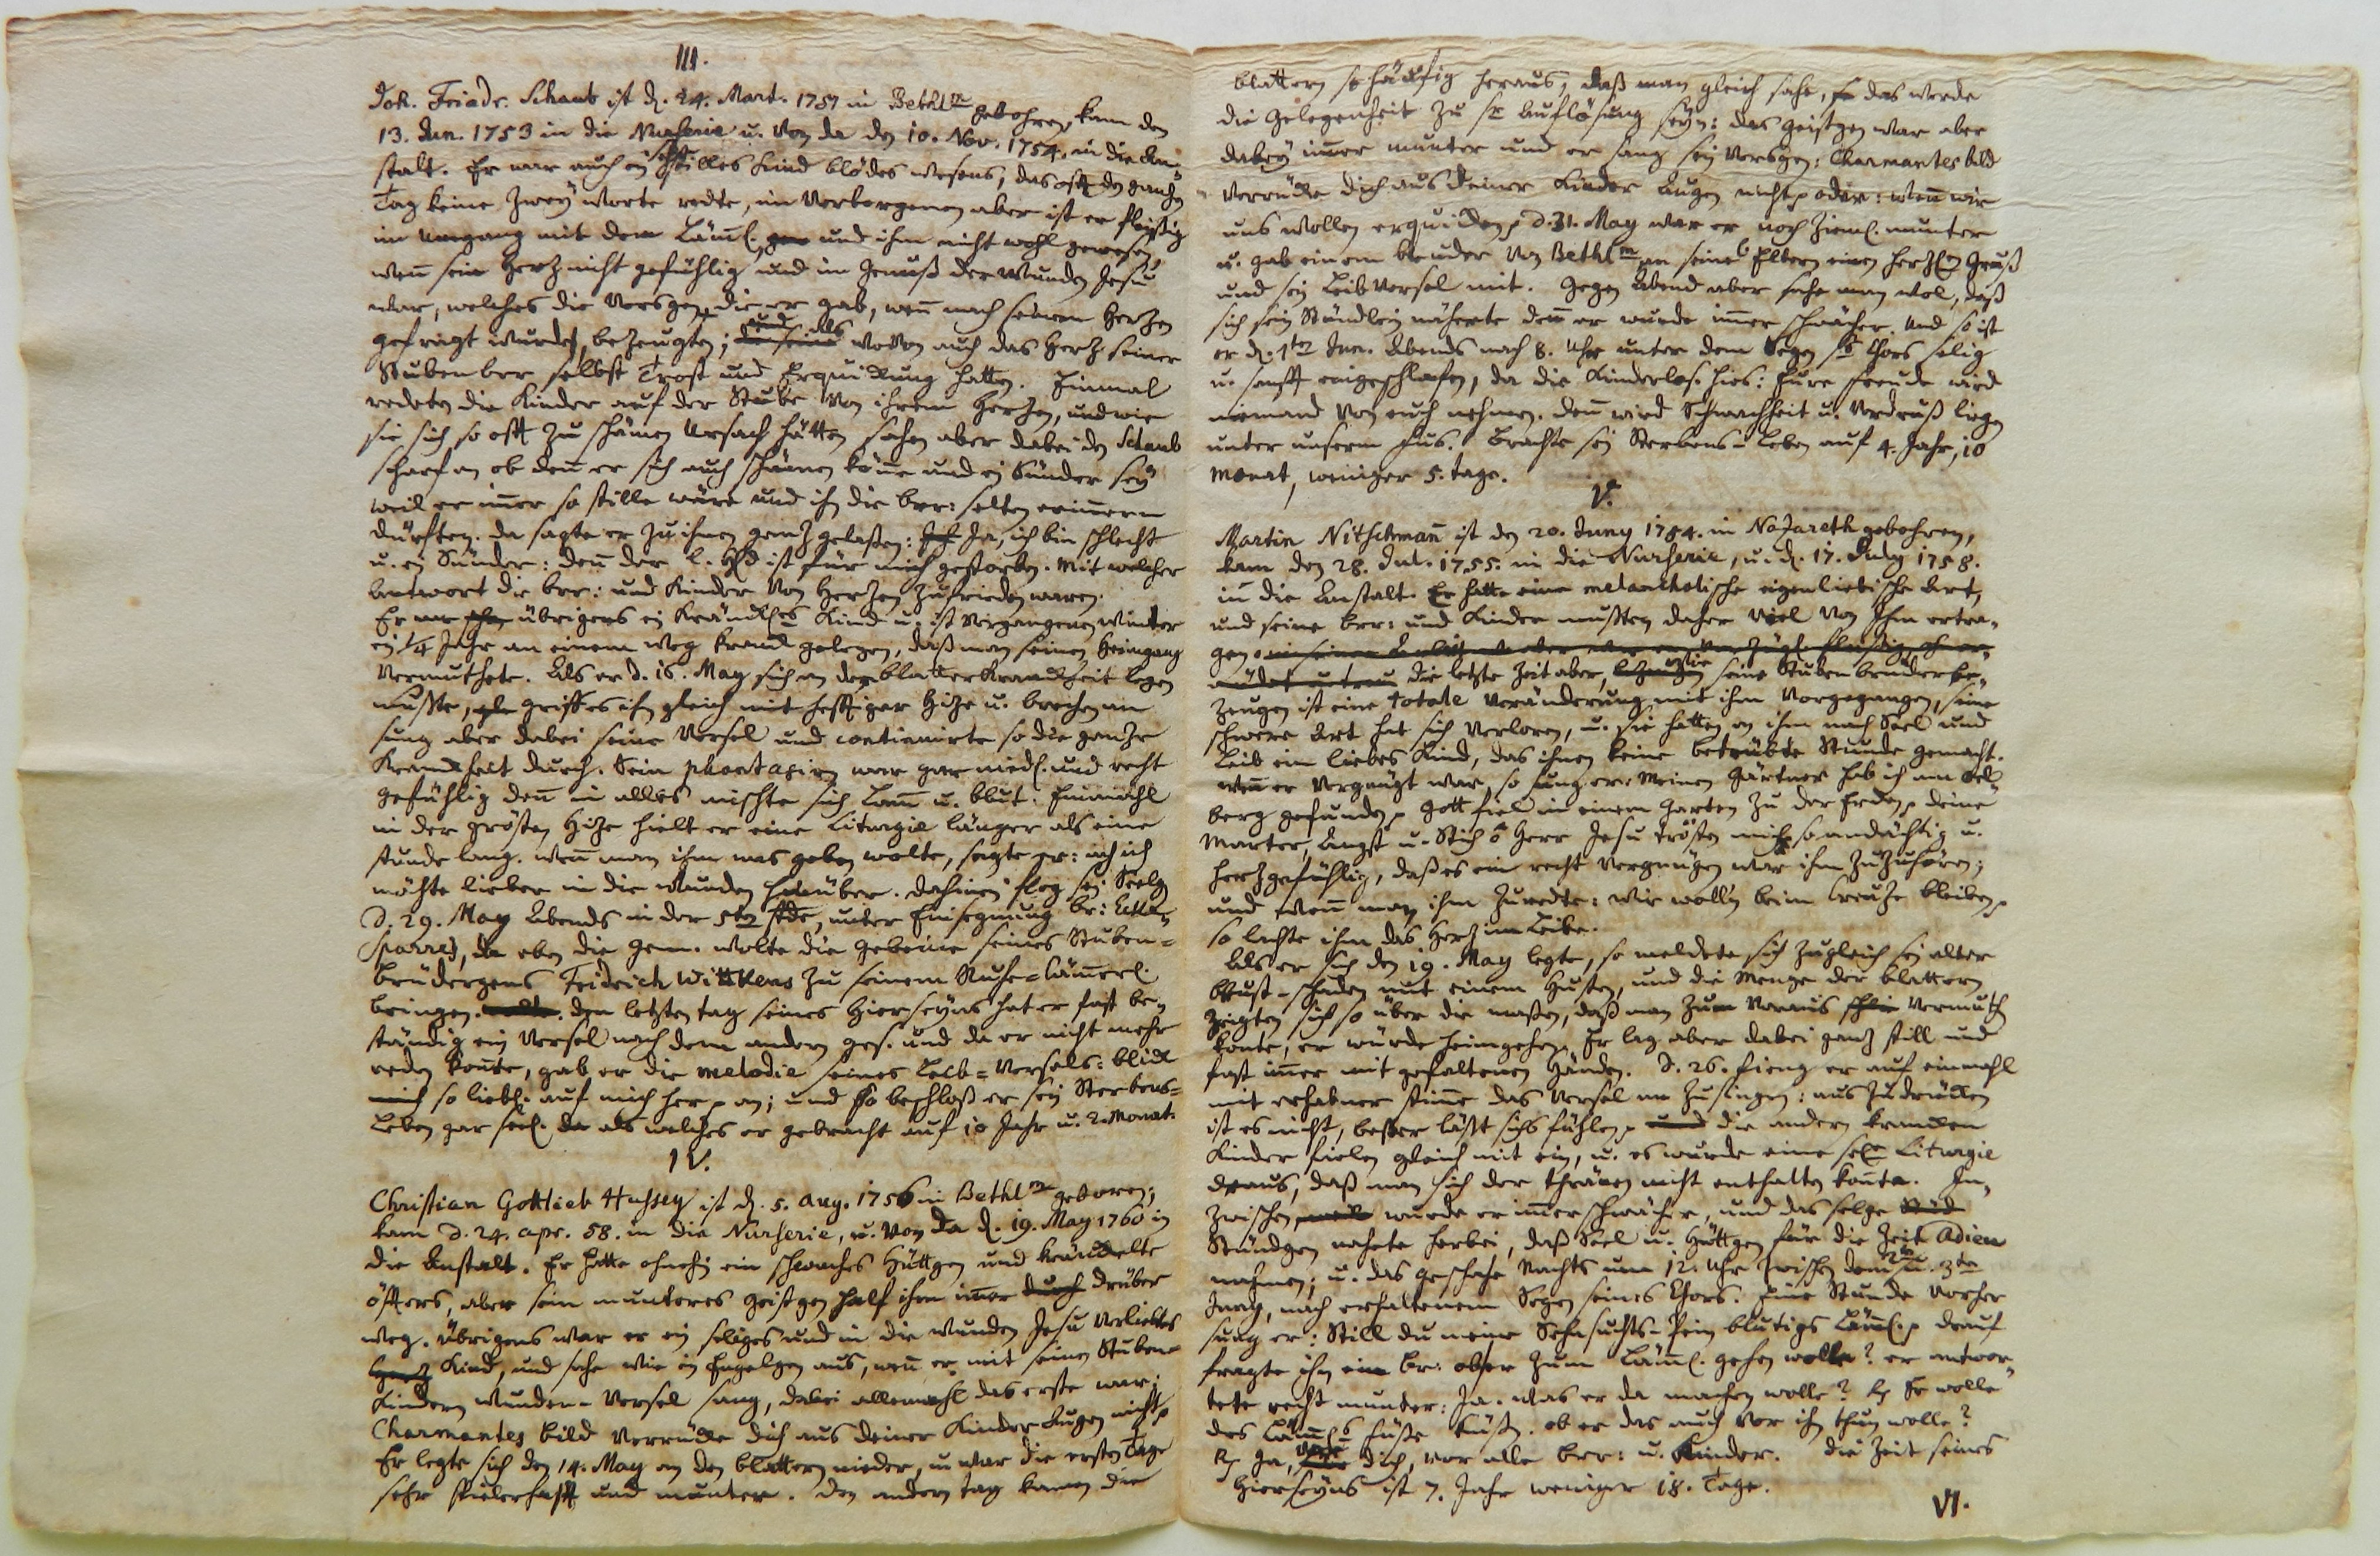 III.
Joh. Friedr. Schaub ist d. 24. Mart. 1751 in Bethl<u>m</u> gebohren, kam den
13. Jan. 1753 in die Nurserie u. von da den 10. Nov. 1754. in die An-
stalt. Er war auch ein sehr stilles Kind blödes wesens, das oft den gantzen
Tag keine zwey Worte redte, im verborgenen aber ist er fleißig
im Umgang mit dem Lämml. und ihm nicht wohl gewesen,
wenn sein Hertz nicht gefühlig und im Genuß der Wunden Jesu
war, welches die Versgen, die er gab, wenn nach seinem Hertzen
gefragt wurde, bezeugten; wovon auch das Hertz seiner
Stubenbrr selbst Trost und Erquickung hatten. Einmal
redeten die Kinder auf der Stube von ihrem Hertzen, und wie
sie sich so oft zu schämen Ursach hätten, sahen aber dabei den Schaub
scharf an ob denn er sich auch schämen könne und ein Sünder sey
weil er immer so stille wäre und ihn die brr: selten erinnern
dürften. da sagte er zu ihnen gantz gelaßen: Ja, ich bin schlecht
u. ein Sünder: denn der l. Hld ist für mich gestorben. Mit welcher
Antwort die brr: und Kinder von Hertzen zufrieden waren.
Er war übrigens ein kränckl<u>es</u> Kind u. ist vergangenen Winter
ein 1/4 Jahr an einem weg kranck gelegen, daß man seinen Heimgang
vermuthete. Als er d. 16. May sich an der blatterkranckheit legen
mußte, griff es ihn gleich mit heftiger Hitze u. brechen an
sung aber dabei seine Versel und continuirte so die gantze
Kranckheit durch. Sein phantasiren war gar niedl. und recht
gefühlig denn in alles mischte sich Lamm u. blut. Einmahl
in der grösten Hitze hielt er eine Liturgie länger als eine
stunde lang. wenn man ihm was geben wolte, sagte er: ach ich
möchte lieber in die Wunden hinüber. dahinein flog sein Seelgen
d. 29. May Abends in der 5ten Stde, unter Einsegnung br: Ettw-
da eben die Gem. wolte die Gebeine seines Stuben-
brüdergens Fridrich Wittkens zu seinem Ruhe-Kämmerl.
bringen. den letzten tag seines Hierseyns hat er fast be-
ständig ein Versel nach dem andern ges. und da er nicht mehr
reden konnte, gab er die melodie seines Leib-Versels: blick
mich so liebl. auf mich her p an; und so beschloß er sein Sterbens-
Leben gar seel. da als welches er gebracht auf 10 Jahr u. 2. Monat.
IV.
Christian Gottlieb Hussey ist d. 5. Aug. 1756 in Bethl<u>m</u> geboren;
kam d. 24. apr. 58. in die Nurserie, u. von da d. 19. May 1760 in
die Anstalt. Er hatte ohnehin ein schwaches Hüttgen und kränckelte
öfters, aber sein munteres geistgen half ihm immer drüber
weg. Übrigens war er ein seliges und in die Wunden Jesu verliebtes
Kind, und sahe wie ein Engelgen aus, wenn er mit seinen Stuben-
Kindern Wunden-Versel sang, dabei allemahl das erste war:
Charmantes bild verrücke dich aus deiner Kinder Augen nicht p
Er legte sich den 14. May an den blattern nieder, u. war die ersten Tage
sehr spielerhaft und munter. den andern tag kamen die
blattern so häuffig heraus, daß man gleich sahe, das werde
die Gelegenheit zu sr Auflösung seyn: das geistgen war aber
dabey immer munter und er sang sein Versgen: Charmantes bild
verrücke dich aus deiner Kinder Augen nicht p oder: wenn wir
uns wollen erquicken p d. 31. May war er noch ziemlich munter
u. gab einem bruder von Bethl<u>m</u> an seine Eltern einen hertzl<u>n</u> Gruß
und sein Leibversel mit. Gegen Abend aber sahe man wol, daß
sich sein Stündlein näherte denn er wurde immer schwächer. Und so ist
er d. 1ten Jun. Abends nach 8. Uhr unter dem Segen s<u>s</u> Chors selig
u. sanft eingeschlafen, da die Kinderlos. hies: Eure Freude wird
niemand von euch nehmen. denn wird Schwachheit u. Verdruß liegen
unter unserm Fus. Brachte sein Sterbens-Leben auf 4. Jahr, 10
Monat, weniger 5. tage.
V.
Martin Nitschmann ist den 20. Juny 1754. in Nazareth gebohren,
kam den 28. Jul. 1755. in die Nurserie, u. d. 17. July 1758.
in die Anstalt. Er hatte eine melancholische eigenliebische Art,
und seine brr: und Kinder mußten daher viel von Ihm ertra-
gen.
die letzte Zeit aber, wie seine Stubenbrüder be-
zeugen ist eine totale veränderung mit ihm vorgegangen, seine
schwere Art hat sich verloren, u. sie hatten an ihm nach Seel und
Leib ein liebes Kind, das ihnen keine betrübte Stunde gemacht.
wenn er vergnügt war, so sung er: Meinen Gärtner hab ich am Oel-
berg gefunden p Gott fiel in einem Garten zu der Erden p deine
Marter, Angst u. Stich o Herr Jesu trösten mich so andächtig u.
hertzgefühlig, daß es ein recht Vergnügen war ihm zuzuhören;
und wenn man ihm zuredte: wir wolln beim Creutze bleiben p
so lachte ihm das Hertz im Leibe.
Als er sich den 19. May legte, so meldete sich zugleich sein alter
Brust-schaden mit einem Husten, und die Menge der blattern
zeigten sich so über die maßen, daß man zum Voraus vermuthen
konte, er würde heimgehen. Er lag aber dabei gantz still und
fast immer mit gefaltenen Händen. d. 26. fieng er auf einmahl
mit erhabner stimme das Versel an zu singen: auszudrücken
ist es nicht, beßer läßt sichs fühlen p die andern krancken
Kinder fielen gleich mit ein, u. es wurde eine sel<u>e</u> Liturgie
draus, daß man sich der thränen nicht enthalten konnte. In-
zwischen wurde er immer schwächer, und das selge
Stündgen nahete herbei, daß Seel u. Hüttgen für die Zeit Adieu
nahmen; u. das geschahe Nachts um 12. Uhr zwischen dem 2ten u. 3ten
Juny, nach erhaltenem Segen seines Chors. Eine Stunde vorher
sung er: Still du meine Sehnsuchts-Pein blutigs Lämml. p drauf
fragte ihn ein br: ob er zum Lämml. gehen wolle? er antwor-
tete recht munter: Ja. was er da machen wolle? R. Er wolle
des Lämml<u>s</u> Füße küßen. ob er das auch vor ihn thun wolle?
R. Ja, vor dich, vor alle brr: u. Kinder. Die Zeit seines
Hierseyns ist 7. Jahr weniger 18. Tage.
VI.